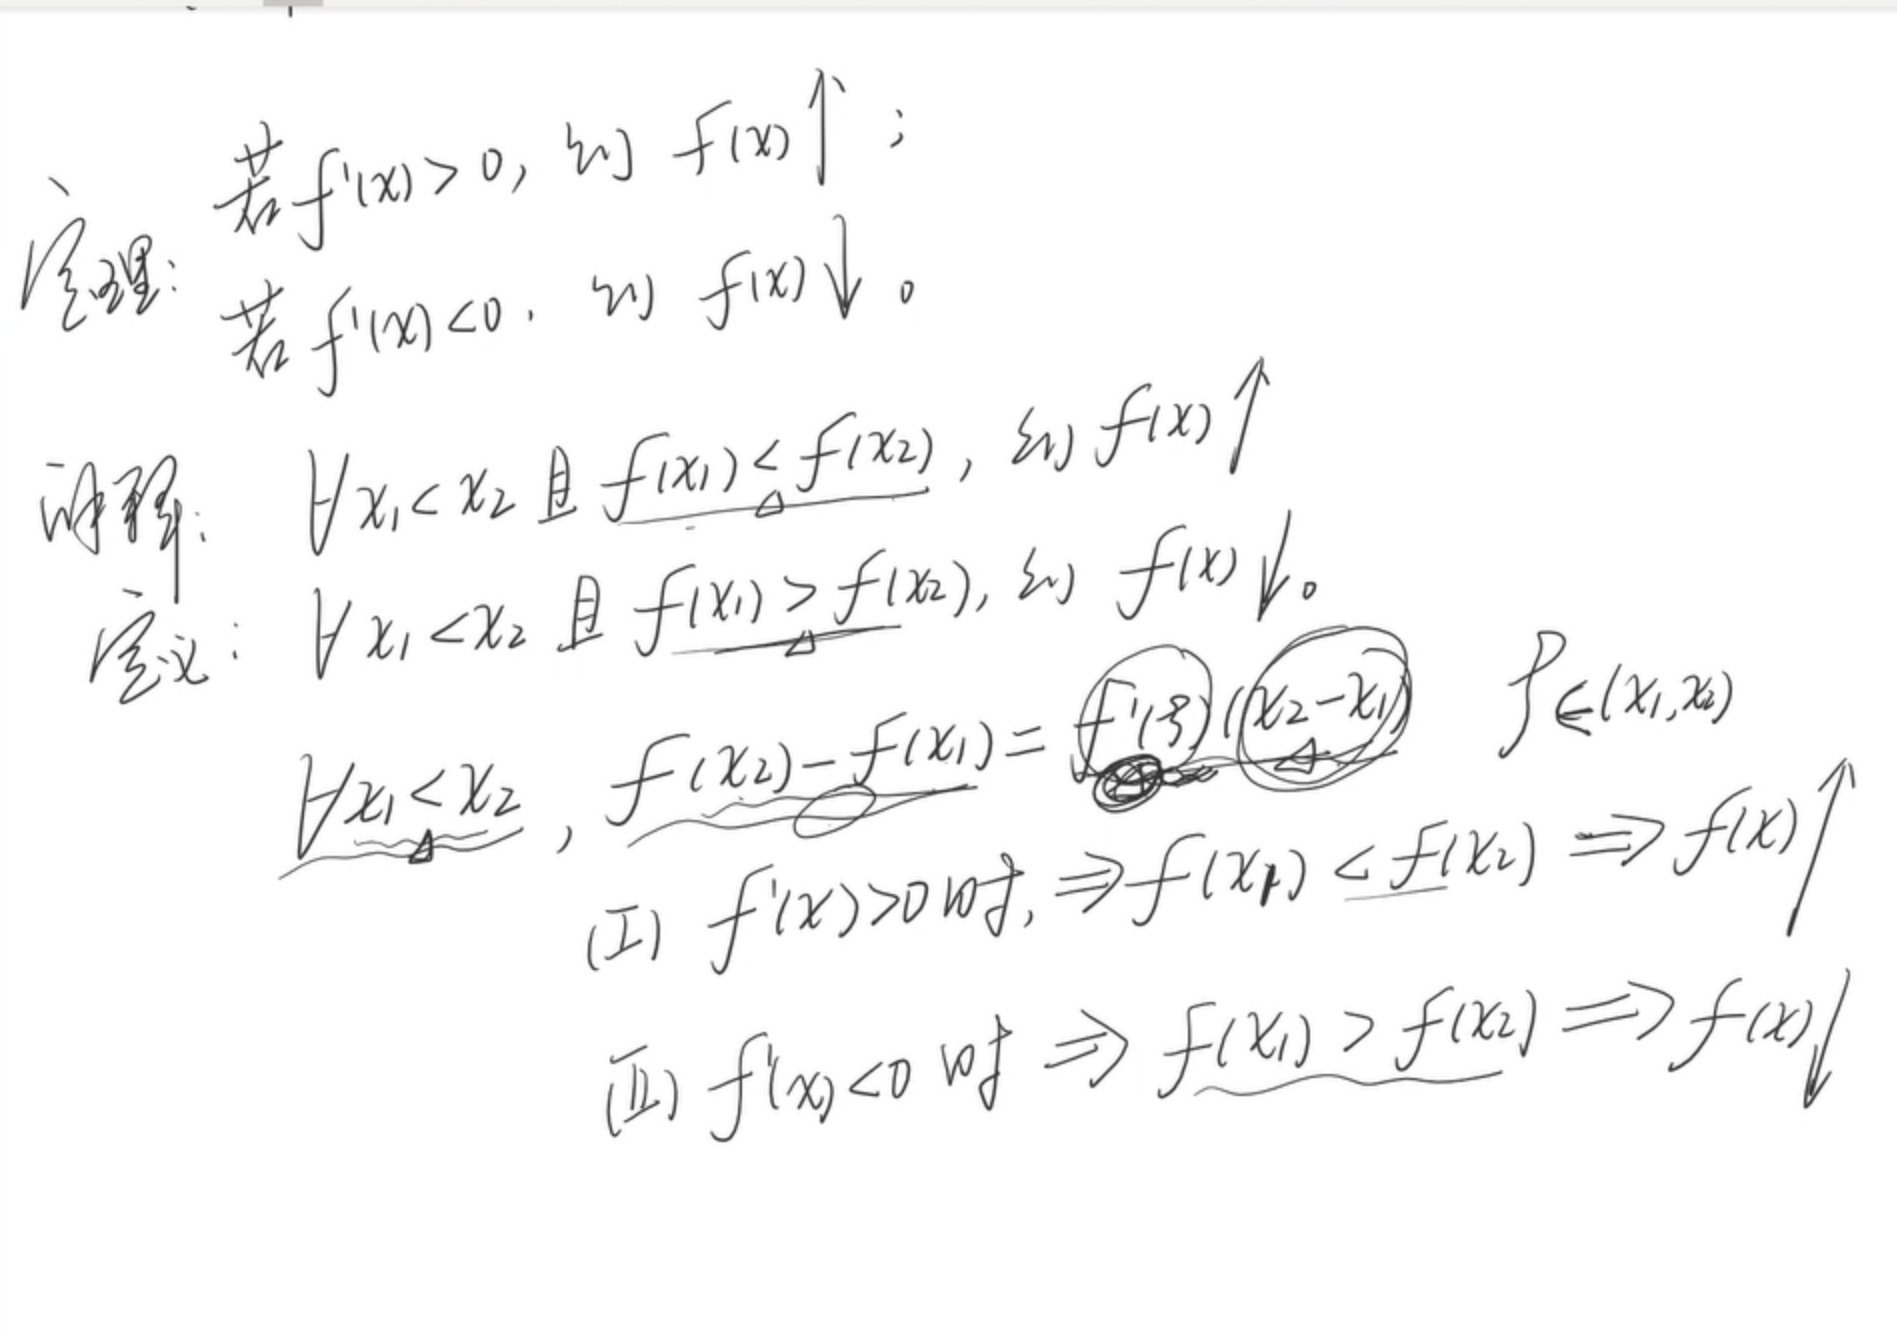 若f'(x)>0, 则 f(x)↑;
定理:
若f'(x)<0. 则 f(x)↓。
讲解: ∀x₁<x₂且f(x₁)<f(x₂), 则f(x)↑
定义: ∀x₁<x₂且f(x₁)>f(x₂), 则 f(x)↓。
∀x₁<x₂, f(x₂)-f(x₁)=f'(ξ)(x₂-x₁) ξ∈(x₁,x₂)
(I) f'(x)>0时, ⇒f(x₁)<f(x₂)⇒f(x)↑
(II) f'(x)<0时⇒f(x₁)>f(x₂)⇒f(x)↓